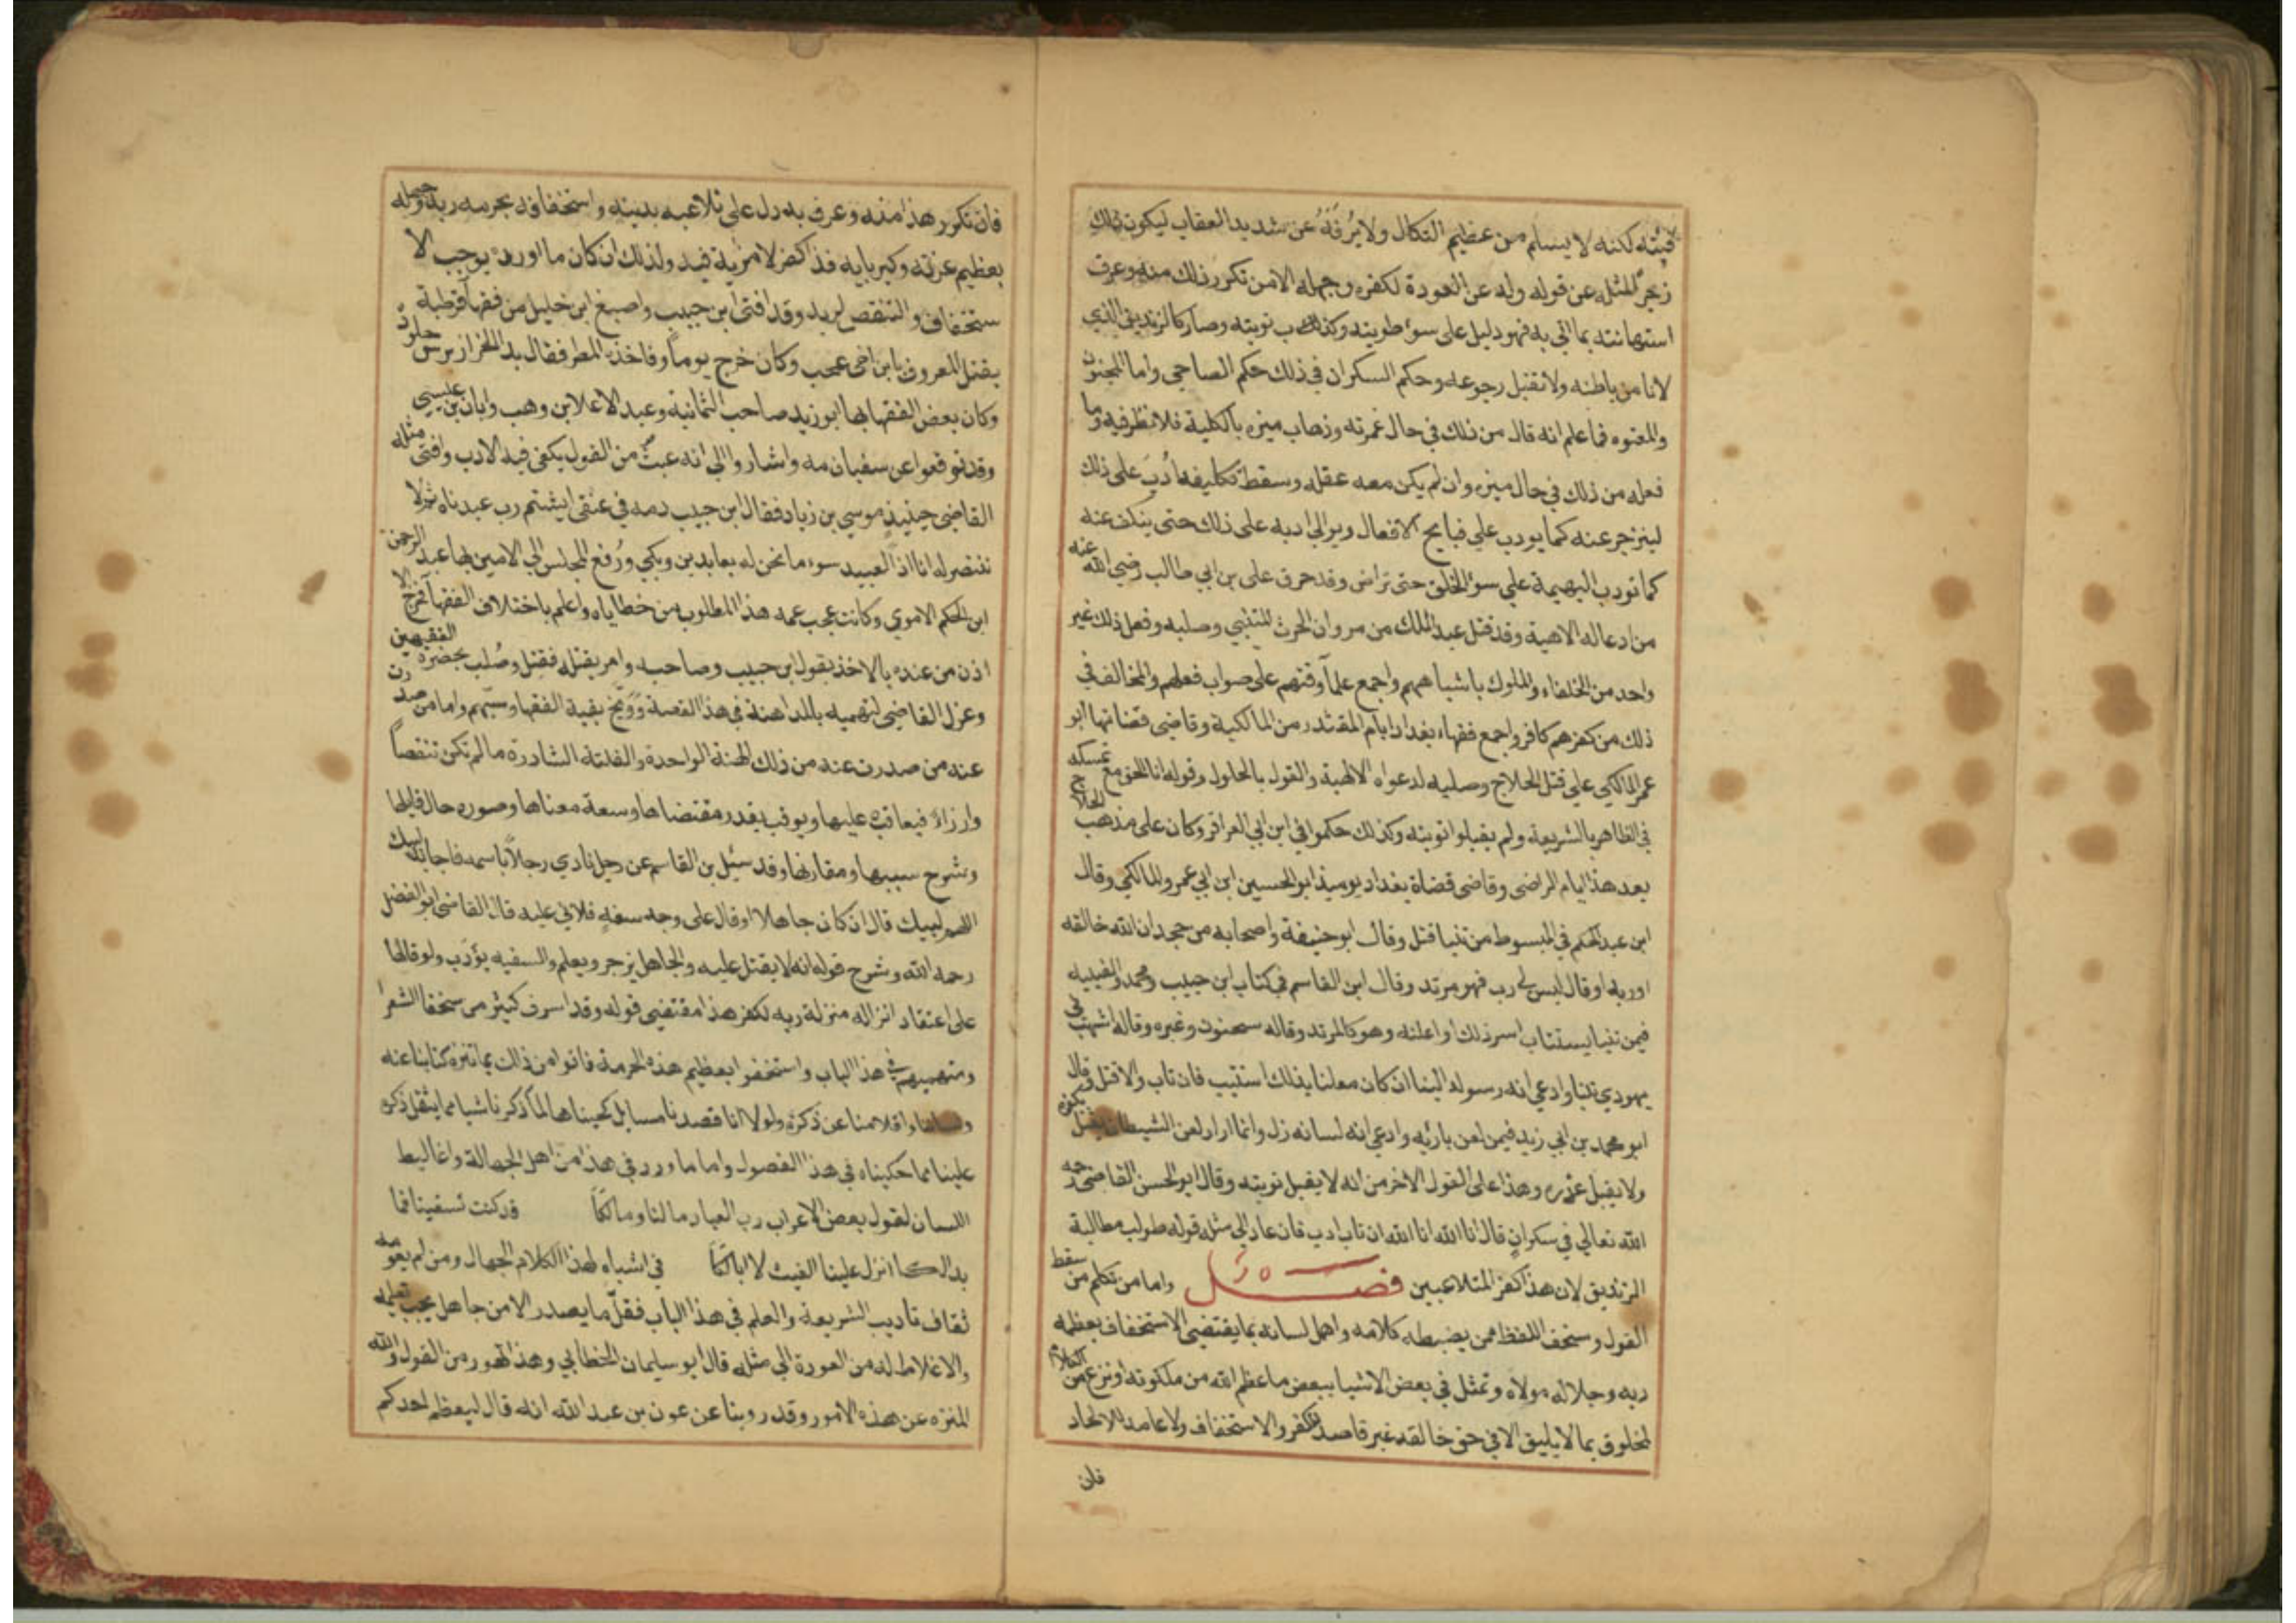 فيئته لكنه لا يسلم من عظيم النكال ولا يُرفَّهُ عن شديد العقاب ليكون ذلك
زجرً المثله عن قوله وله عن العودة لكفره وجهله الا من تكرر ذلك منه وعرف
استهانته بما اتي به فهو دليل على سوء طويته وكذب توبته وصار كالزنديق الذي
لا نامن باطنه ولا نقبل رجوعه وحكم السكران في ذلك حكم الصاحي واما المجنون
والمعتوه فما علم انه قال من ذلك في حال غمرته وذهاب ميزه بالكلية فلا نظر فيه وما
فعله من ذلك في حال ميزه وان لم يكن معه عقله وسقط تكليفه اُدبَ على ذلك
لينزجر عنه كما يودب علي قبايح الافعال ويوالي ادبه على ذلك حتى ينكف عنه
كما تودب البهيمة علي سوء الخلق حتى تراض وقد حرق على بن ابي طالب رضي الله عنه
من ادعا له الاهية وقد قتل عبد الملك من مروان الحرث المتنبي وصلبه وفعل ذلك غير
واحد من الخلفاء والملوك باشباههم واجمع علمآ وقتهم على صواب فعلهم والمخالف في
ذلك من كفرهم كافر واجمع فقهاء بغداد ايام المقتدر من المالكية وقاضي قضاتها ابو
عمر المالكي علي قتل الحلاج وصلبه لدعواه الالهية والقول بالحلول وقوله انا الحق مع تمسكه
في الظاهر بالشريعة ولم يقبلوا توبته وكذلك حكموا في ابن ابي العراقر وكان على مذهب الحلاج
بعد هذا ايام الراضى وقاضى قضاة بغداد يوميذ ابو الحسين ابن ابي عمرو المالكي وقال
ابن عبد الحكم في المبسوط من تنبا قتل وقال ابو حنيفة واصحابه من جحد ان الله خالقه
اوربه او قال ليس لي رب فهو مرتد وقال ابن القاسم في كتاب ابن حبيب ومحمد والعتبيه
فيمن تنبا يستتاب اسر ذلك او اعلنه وهو كالمرتد وقاله سحنون وغيره وقاله اشهب في
يهودي تنبا وادعي انه رسول الينا ان كان معلنا بذلك استتيب فان تاب والا قتل وقال
ابو محمد بن ابي زيد فيمن لعن بارئه وادعي انه لسانه زل وانما اراد لعن الشيطان يقتل بكفره
ولا يقبل عذره وهذا على القول الاخر من انه لا يقبل توبته وقال ابو الحسن القاضي رحمه
الله تعالي في سكرانٍ قال انا الله انا الله ان تاب ادب فان عاد الي مثل قوله طولب مطالبة
الزنديق لان هذا كفر المتلاعبين فصل واما من تكلم من سقط
القول وسخف اللفظ ممن يضبط كلامه واهمل لسانه بما يقتضي الاستخفاف بعظمه
ربه وجلاله مولاه وتمثل في بعض الاشيا ببعض ما عظم الله من ملكوته او نزع من الكلام
لمخلوق بما لا يليق الا في حق خالقه غير قاصد للكفر والاستخفاف ولا عامد للالحاد
فان
فان تكرر هذا منه وعرف به دل على تلاعبه بدينه واستخفافه بحرمه ربه وجهله
بعظيم عزته وكبريايه فذا كفر لا مرية فيه ولذلك ان كان ما اورده يوجب الا
ستخفاف والتنقص لربه وقد افتى ابن حبيب واصبغ ابن خليل من فقها قرطبة
بقتل المعروف بابن اخي عجب وكان خرج يوماً فاخذه المطر فقال بدا الخراز يرش جلوده
وكان بعض الفقها بها ابو زيد صاحب الثمانية وعبد الاعلا بن وهب وابان بن عيسي
وقد توقعوا عن سفيان مه واشاروا الي انه عبث من القول يكفي فيه الادب وافتى مثله
القاضي حينيذ موسي بن زياد فقال ابن حبيب دمه في عنقي ايشتم رب عبدناه ثم لا
ننتصر له انا اذاً العبيد سوء ما نحن له بعابدين وبكي ورُفع المجلس الي الامير بها عبد الرحمن
ابن الحكم الاموي وكانت عجب عمه هذا المطلوب من خطاياه واعلم باختلاف الفقهآ فخرج الا
اذن من عنده بالاخذ بقول ابن حبيب وصاحبه وامر بقتله فقتل وصُلب بحضرة الفقيهين
وعزل القاضي لتهميه بالمداهنة في هذا القصة ووبّخ بقية الفقها وسبّهم واما من صدرت
عنه من صدرت عنه من ذلك الهنة الواحدة والفلتة الشادرة ما لم تكن تنقصاً
وازراءً فيعاقب عليها ويودب بقدر مقتضاها وسعة معناها وصوره حال قايلها
وشرح سببها ومقارنها وقد سئل بن القاسم عن رجل نادي رجلاً باسمه فاجابه لبيك
اللهم لبيك قال ان كان جاهلا او قال على وجه سفهٍ فلا شي عليه قال القاضي ابو الفضل
رحمه الله وشرح قوله انه لا يقتل عليه والجاهل يزجر ويعلم والسفيه يؤدّب ولو قالها
على اعتقاد انزاله منزلة ربه لكفر هذا مقتضي قوله وقد اسرف كثير من سخفا الشعرا
ومتهميهم في هذا الباب واستخفوا بعظيم هذه الحرمة فاتوا من ذلك بما ننزه كتابنا عنه
ولساننا واقلامنا عن ذكره ولولا انا قصدنا مسايل حكيناها لما ذكرنا شيا مما يثقل ذكره
علينا مما حكيناه في هذا الفصول واما ما ورد في هذا من اهل الجهالة واغاليط
اللسان لقول بعض الاعراب رب العباد ما لنا ومالكا قد كنت تسقينا فما
بدالكا انزل علينا الغيث لا ابالكا في اشباه لهذا الكلام الجهال ومن لم يقومه
ثقاف تاديب الشريعة والعلم في هذا الباب فقلّ ما يصدر الا من جاهل يجب تعليمه
والاغلاط له من العودة الي مثله قال ابو سليمان الخطابي وهذا تهور من القول والله
المنزه عن هذه الامور وقد روينا عن عون بن عبد الله انه قال ليعظم احدكم